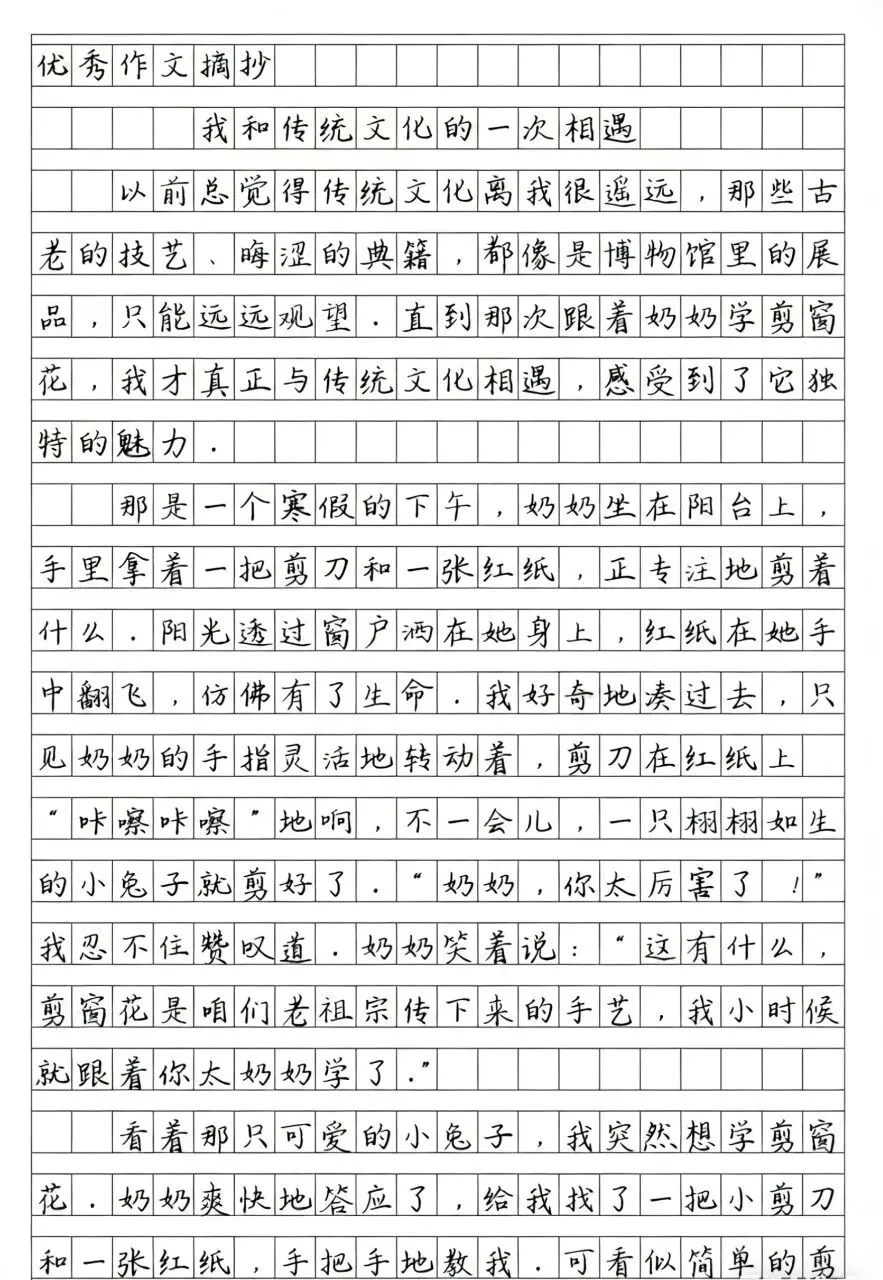 优秀作文摘抄
我和传统文化的一次相遇
以前总觉得传统文化离我很遥远，那些古
老的技艺、晦涩的典籍，都像是博物馆里的展
品，只能远远观望．直到那次跟着奶奶学剪窗
花，我才真正与传统文化相遇，感受到了它独
特的魅力．
那是一个寒假的下午，奶奶坐在阳台上，
手里拿着一把剪刀和一张红纸，正专注地剪着
什么．阳光透过窗户洒在她身上，红纸在她手
中翻飞，仿佛有了生命．我好奇地凑过去，只
见奶奶的手指灵活地转动着，剪刀在红纸上
“咔嚓咔嚓”地响，不一会儿，一只栩栩如生
的小兔子就剪好了．“奶奶，你太厉害了！”
我忍不住赞叹道．奶奶笑着说：“这有什么，
剪窗花是咱们老祖宗传下来的手艺，我小时候
就跟着你太奶奶学了．”
看着那只可爱的小兔子，我突然想学剪窗
花．奶奶爽快地答应了，给我找了一把小剪刀
和一张红纸，手把手地教我．可看似简单的剪